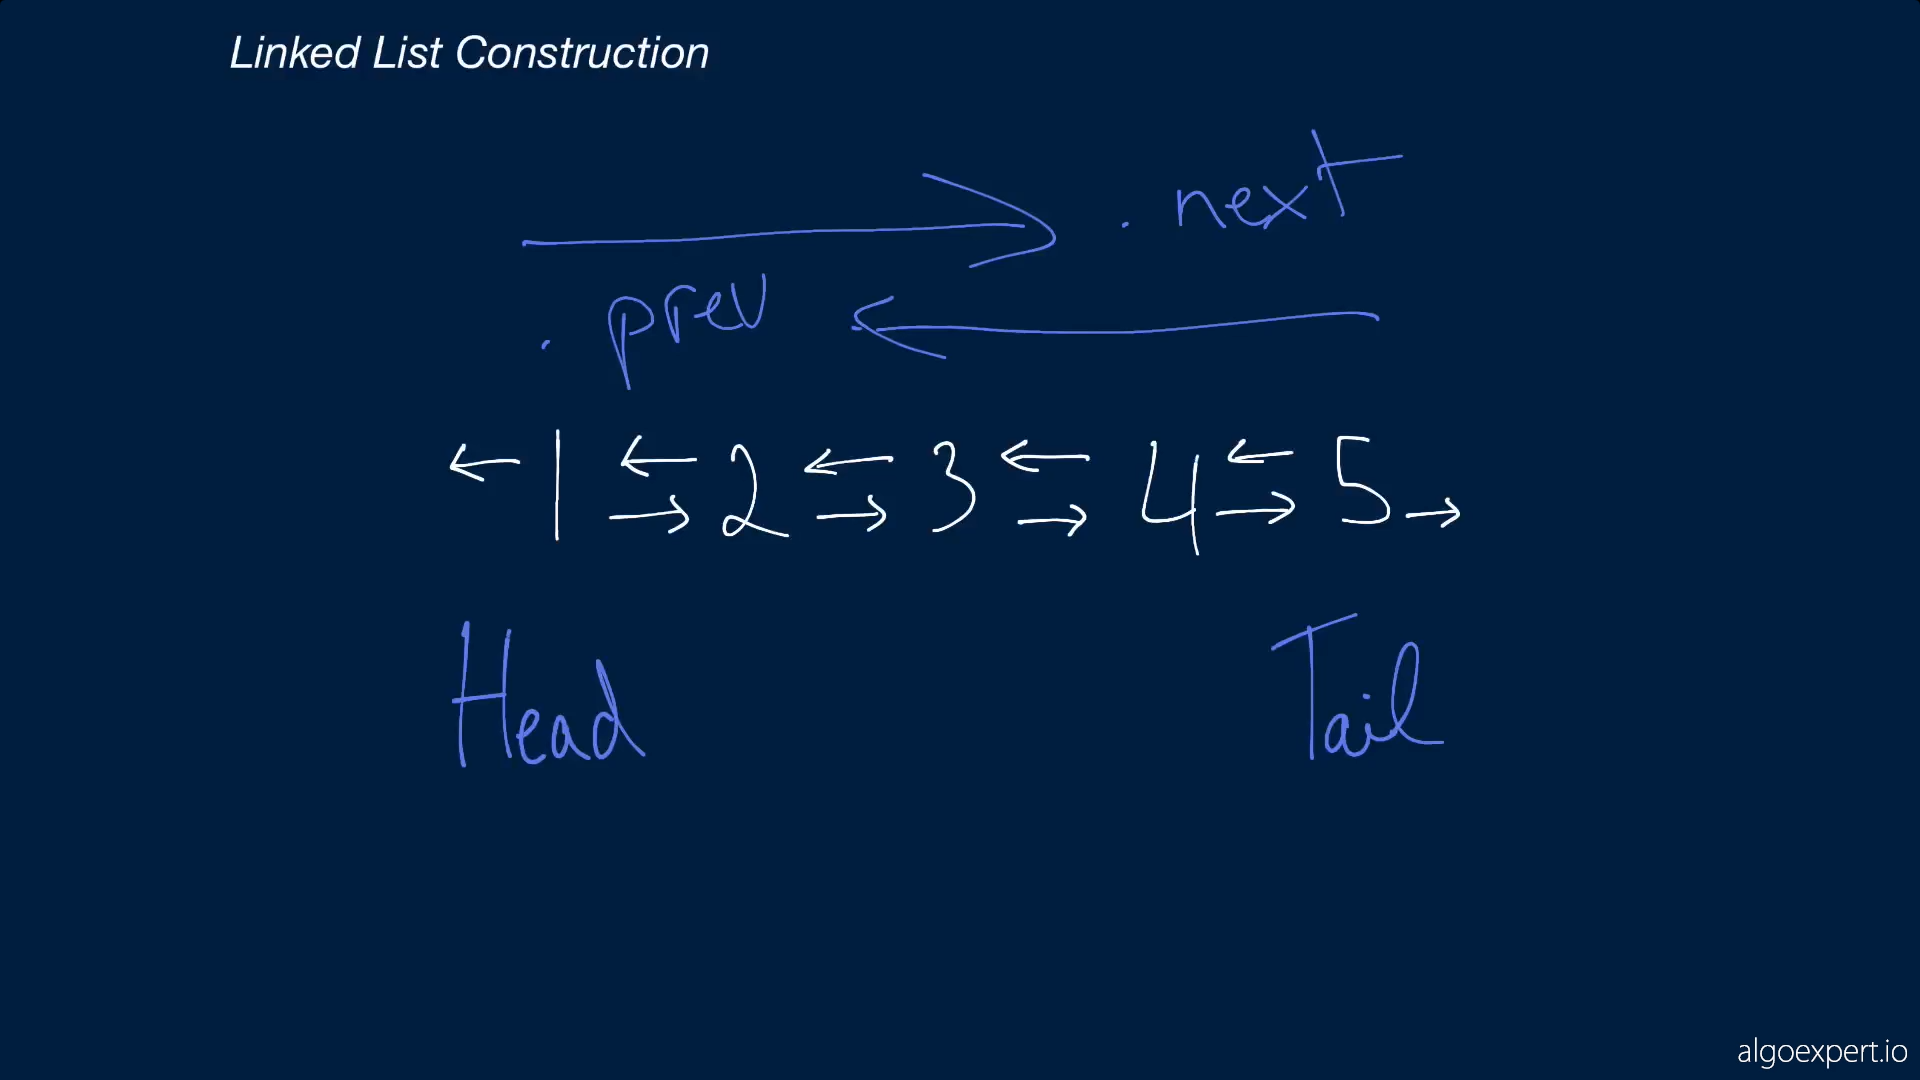 Linked List Construction
. next
. prev
1 2 3 4 5
Head Tail
algoexpert.io